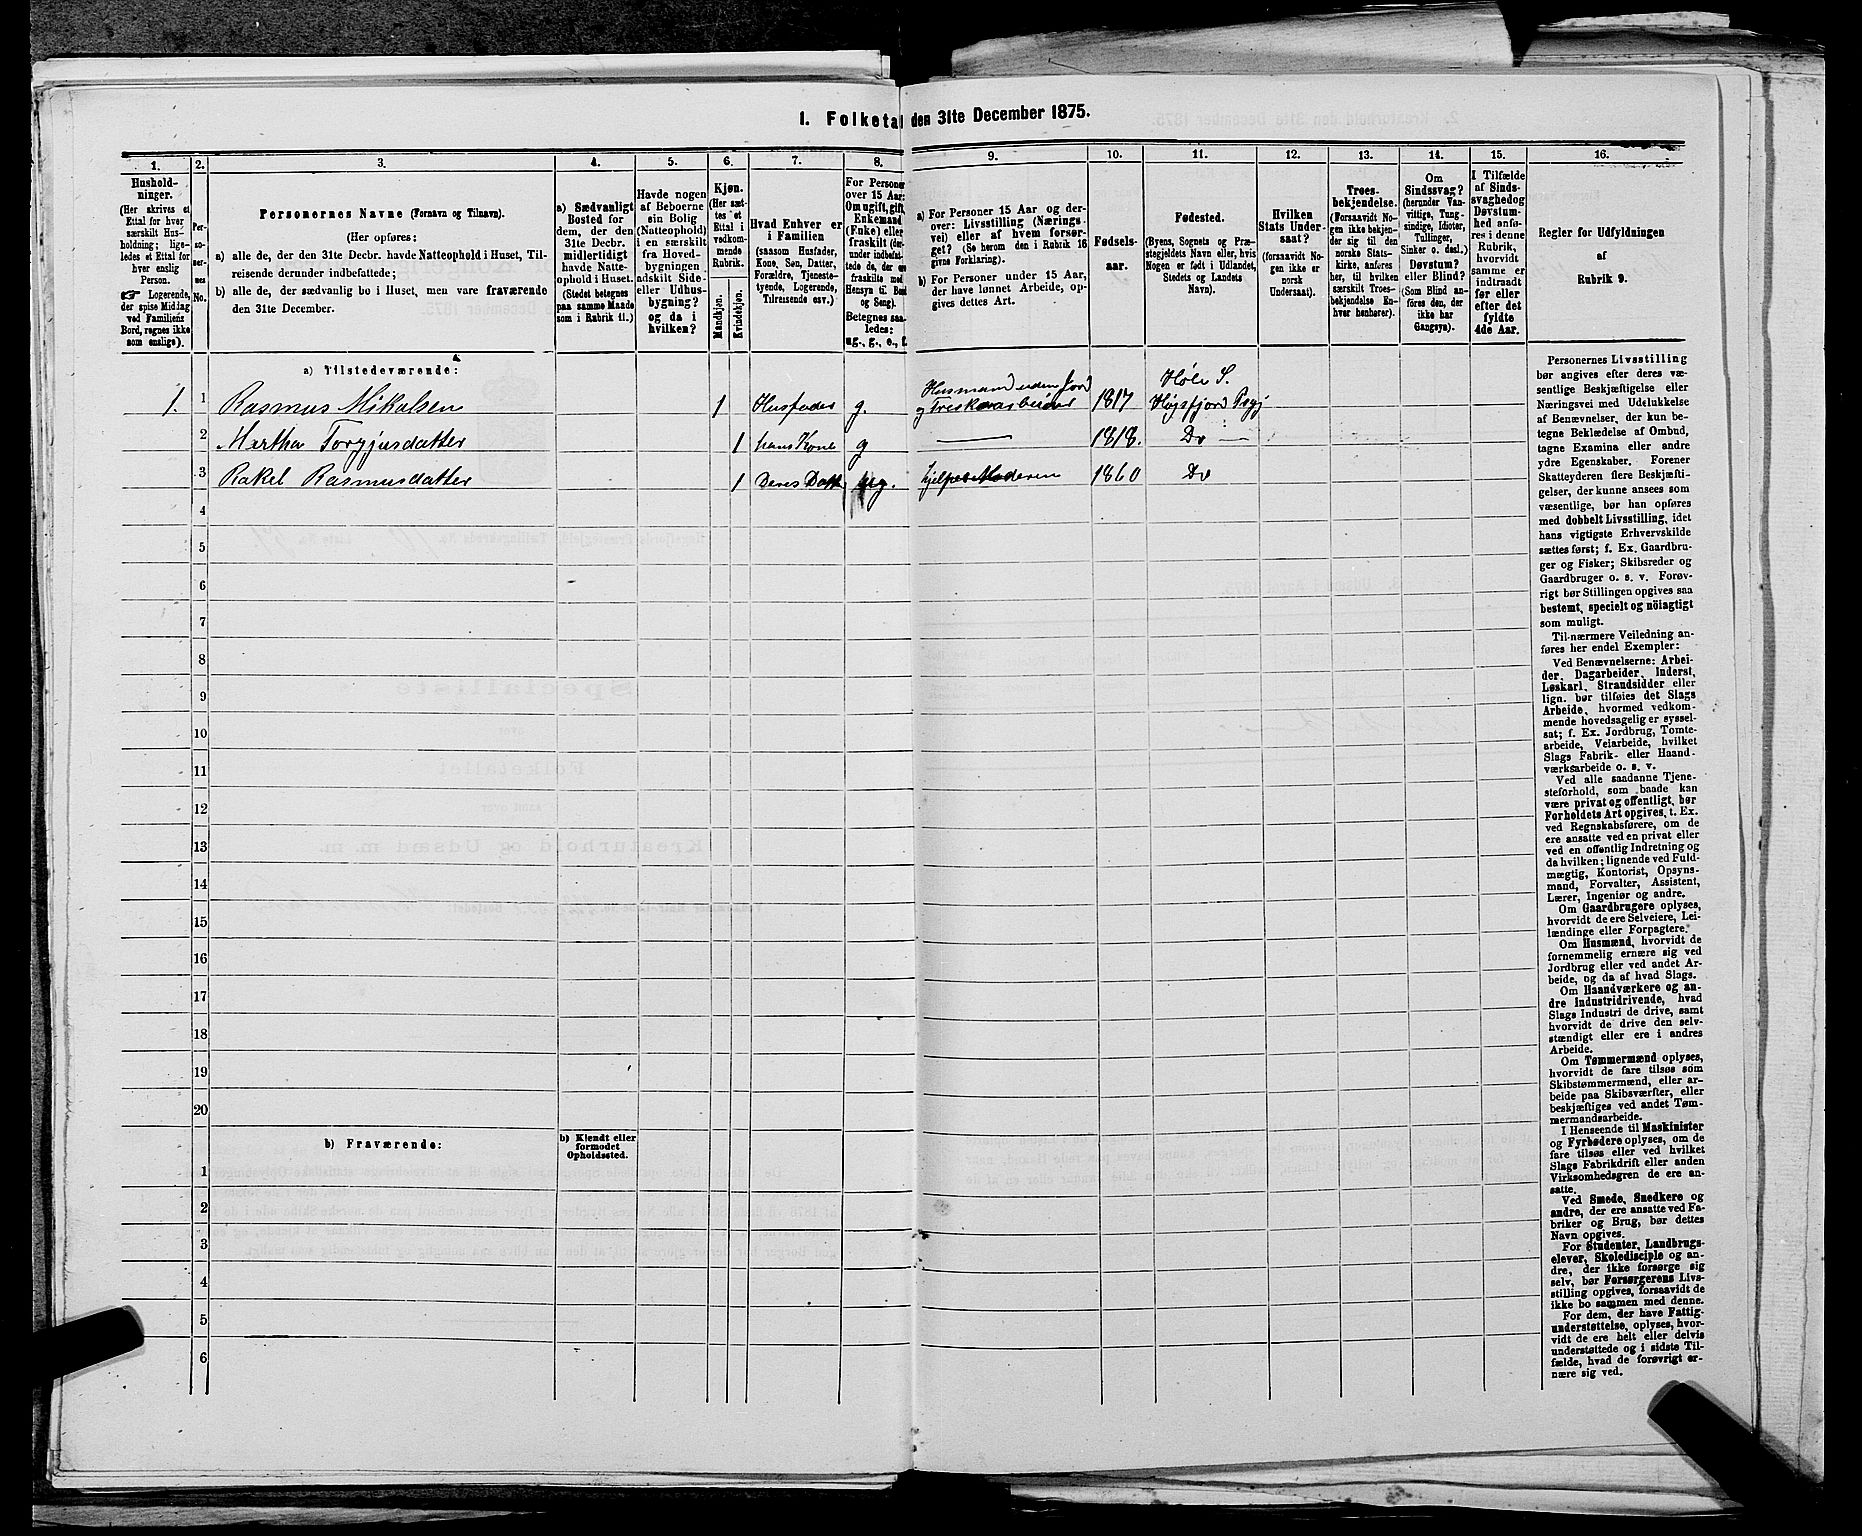 1. Folketal den 31te December 1875.
1. 2. 3. 4. 5. 6. 7. 8. 9. 10. 11. 12. 13. 14. 15. 16.
Hushold-
ninger.
(Her skrives et
Ettal for hver
særskilt Hus-
holdning; ligs-
ledes et Ettal for
hver enslig
Person.
☞ Logerende,
der spise Middag
ved Familiens
Bord, regnes ikke
som enslige).
Per-
so-
ner-
nes
No.
Personernes Navne (Fornavn og Tilnavn).
(Her opføres:
a) alle de, der den 31te Decbr. havde Natteophold i Huset, Til-
reisende derunder indbefattede;
b) alle de, der sædvanlig bo i Huset, men vare fraværende
den 31te December.
a) Sædvanligt
Bosted for
dem, der den
31te Decbr.
midlertidigt
havde Natte-
ophold i Huset.
(Stedet betegnes
paa samme Maade
som i Rubrik 11.)
Havde nogen
af Beboerne
sin Bolig
(Natteophold)
i en særskilt
fra Hoved-
bygningen
adskilt Side-
eller Udhus-
bygning?
og da i
hvilken?
Kjøn.
(Her sæt-
tes et
Ettal i
vedkom-
mende
Rubrik.
Mandkjøn.
Kvindekjøn.
Hvad Enhver er
i Familien
(saasom Husfader,
Kone, Søn, Datter,
Forældre, Tjeneste-
tyende, Logerende,
Tilreisende osv.)
For Personer
over 15 Aar:
Om ugift, gift,
Enkemand
(Enke) eller
fraskilt (der-
under indbefat-
tede de, der ere
fraskilte med
Hensyn til Bord
og Seng).
Betegnes saa-
ledes:
ug., g., e., f.
a) For Personer 15 Aar og der-
over: Livsstilling (Nærings-
vei) eller af hvem forsør-
get? (Se herom den i Rubrik 16
givne Forklaring).
b) For Personer under 15 Aar,
der have lønnet Arbeide, op-
gives dettes Art.
Fødsels-
aar.
Fødested.
(Byens, Sognets og Præ-
stegjeldets Navn eller, hvis
Nogen er født i Udlandet,
Stedets og Landets
Navn).
Hvilken
Stats Under-
saat?
(forsaavidt No-
gen ikke er
norsk
Undersaat).
Troes-
bekjendelse.
(Forsaavidt No-
gen ikke bekjen-
der sig til den
norske Stats-
kirke, anføres
her, til hvilken
særskilt Troes-
bekjendelse En-
hver henhører).
Om
Sindssvag?
(herunder Van-
vittige, Tung-
sindige, Idioter,
Tullinger,
Sinker o. desl.)
Døvstum?
eller Blind?
(Som Blind an-
føres den, der
ikke har
Gangsyn).
I Tilfælde
af Sinds-
svaghed og
Døvstum-
hed anfø-
res i denne
Rubrik,
hvorvidt
samme er
indtraadt
før eller
efter det
fyldte
4de Aar.
Regler for Udfyldningen
af
Rubrik 9.
a) Tilstedeværende:
1. 1 Rasmus Mikalsen 1 Husfader g. Husmand uden Jord 1817 Høle S.
og Treskoarbeider Høgsfjord Prgj
2 Martha Torgjusdatter 1 hans Kone g — 1818. Do —
3 Rakel Rasmusdatter 1 Deres Datt ug. hjelper Moderen 1860 Do
4
5
6
7
8
9
10
11
12
13
14
15
16
17
18
19
20
b) Fraværende:
b) Kjendt eller
formodet
Opholdssted.
1
2
3
4
5
6
Personernes Livsstilling
bør angives efter deres væ-
sentlige Beskjæftigelse eller
Næringsvei med Udelukkelse
af Benævnelser, der kun be-
tegne Beklædelse af Ombud,
tagne Examina eller andre
ydre Egenskaber. Forener
Skatteyderen flere Beskjæfti-
gelser, der kunne ansees som
væsentlige, bør han opføres
med dobbelt Livsstilling, idet
hans vigtigste Erhvervskilde
sættes først; f. Ex. Gaardbru-
ger og Fisker; Skibsreder og
Gaardbruger o. s. v. Forøv-
rigt bør Stillingen opgives saa
bestemt, specielt og nöiagtigt
som muligt.
Til nærmere Veiledning an-
føres her endel Exempler:
Ved Benævnelserne: Arbei-
der, Dagarbeider, Inderst,
Løskarl, Strandsidder eller
lign. bør tilføies det Slags
Arbeide, hvormed vedkom-
mende hovedsagelig er syssel-
sat; f. Ex. Jordbrug, Tomte-
arbeide, Veiarbeide, hvilket
Slags Fabrik- eller Haand-
værksarbeide o. s. v.
Ved alle saadanne Tjene-
steforhold, som baade kan
være privat og offentligt, bør
Forholdets Art opgives, t. Ex.
ved Regnskabsførere, om de
ere ansatte ved en privat eller
ved en offentlig Indretning og
da hvilken; lignende ved Fuld-
mægtig, Kontorist, Opsyns-
mand, Forvalter, Assistent,
Lærer, Ingeniør og andre.
Om Gaardbrugere oplyses,
hvorvidt de ere Selveiere, Lei-
lændinge eller Forpagtere.
Om Husmænd, hvorvidt de
fornemmelig ernære sig ved
Jordbrug eller ved andet Ar-
beide, og da af hvad Slags.
Om Haandværkere og an-
dre Industridrivende, hvad
Slags Industri de drive, samt
hvorvidt de drive den selv-
stændigt eller ere i andres
Arbeide.
Om Tømmermænd oplyses,
hvorvidt de fare tilsøs som
Skibstømmermænd, eller ar-
beide paa Skibsværfter, eller
beskjæftiges ved andet Tøm-
mermandsarbeide.
I Henseende til Maskinister
og Fyrbødere oplyses, om de
fare tilsøs eller ved hvilket
Slags Fabrikdrift eller anden
Virksomhedsgren de ere an-
satte.
Ved Smede, Snedkere og
andre, der ere ansatte ved Fa-
briker og Brug, bør dettes
Navn opgives.
For Studenter, Landbrugs-
elever, Skoledisciple og an-
dre, der ikke forsørge sig
selv, bør Forsørgerens Livs-
stilling opgives, forsaavidt de
ikke bo sammen med denne.
For dem, der have Fattig-
understøttelse, oplyses, hvor-
vidt de ere helt eller delvis
understøttede og i sidste Til-
fælde, hvad de forøvrigt er-
nære sig ved.